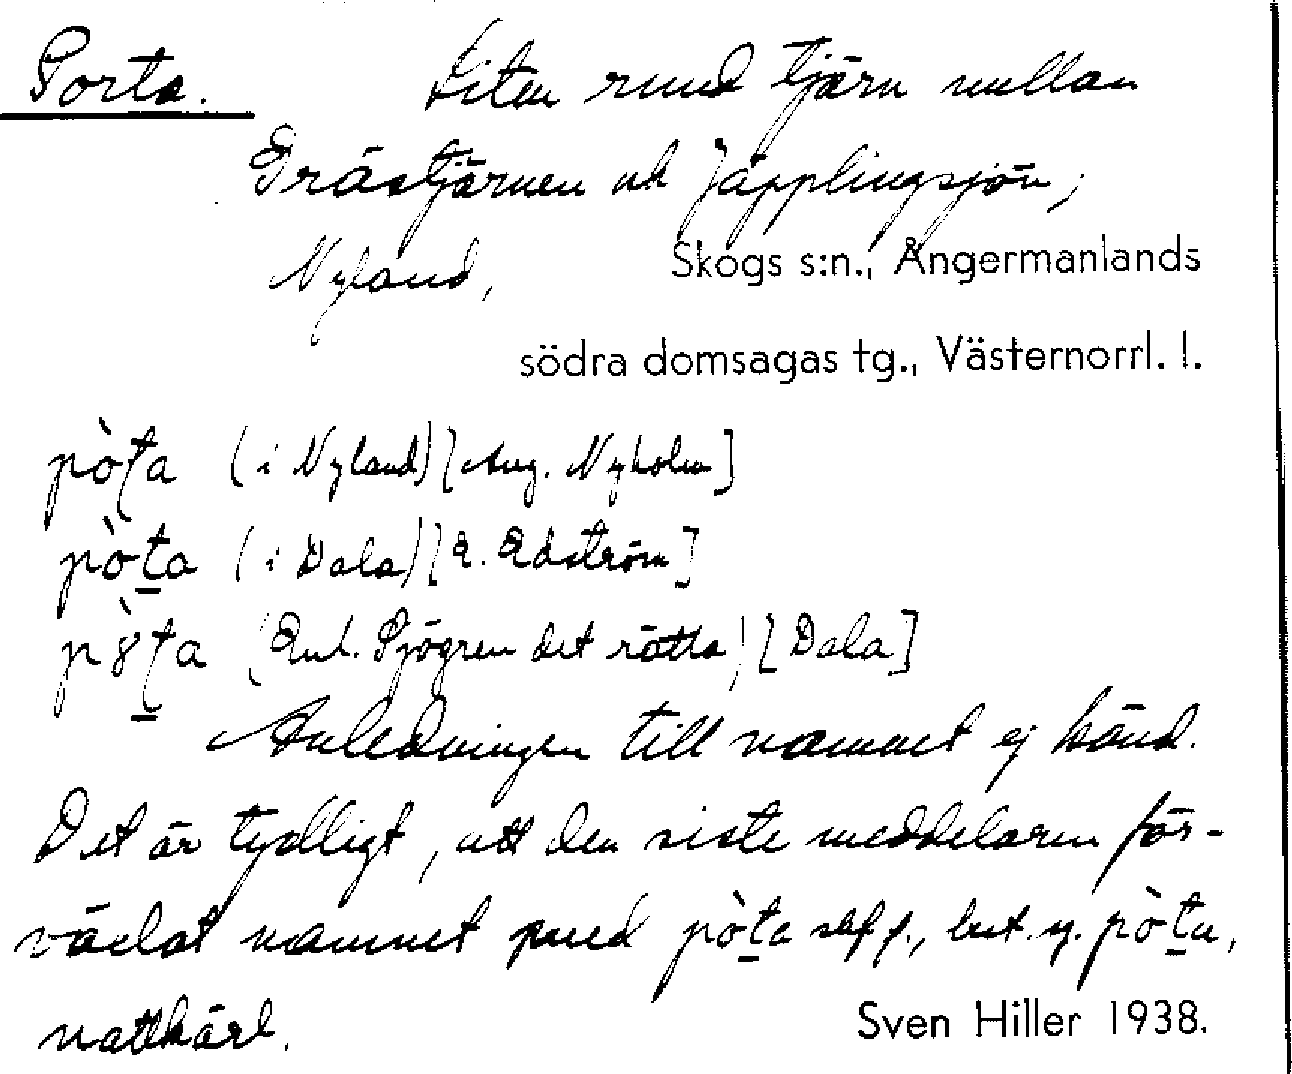 Porta. Liten rund tjärn mellan
Grästjärnen och Japplingsjön;
Nyland, Skogs s:n., Ångermanlands
södra domsagas tg., Västernorrl. l.
pòta (i Nyland) [Aug. Nyholm]
pòta (i Dala) [E. Edström]
pòta (Enl. Sjögren det rätta) [Dala]
Anledningen till namnet ej känd.
Det är tydligt, att den siste meddelaren för-
växlat namnet med pòta sbf f., best. pòta,
nattkärl.
Sven Hiller 1938.